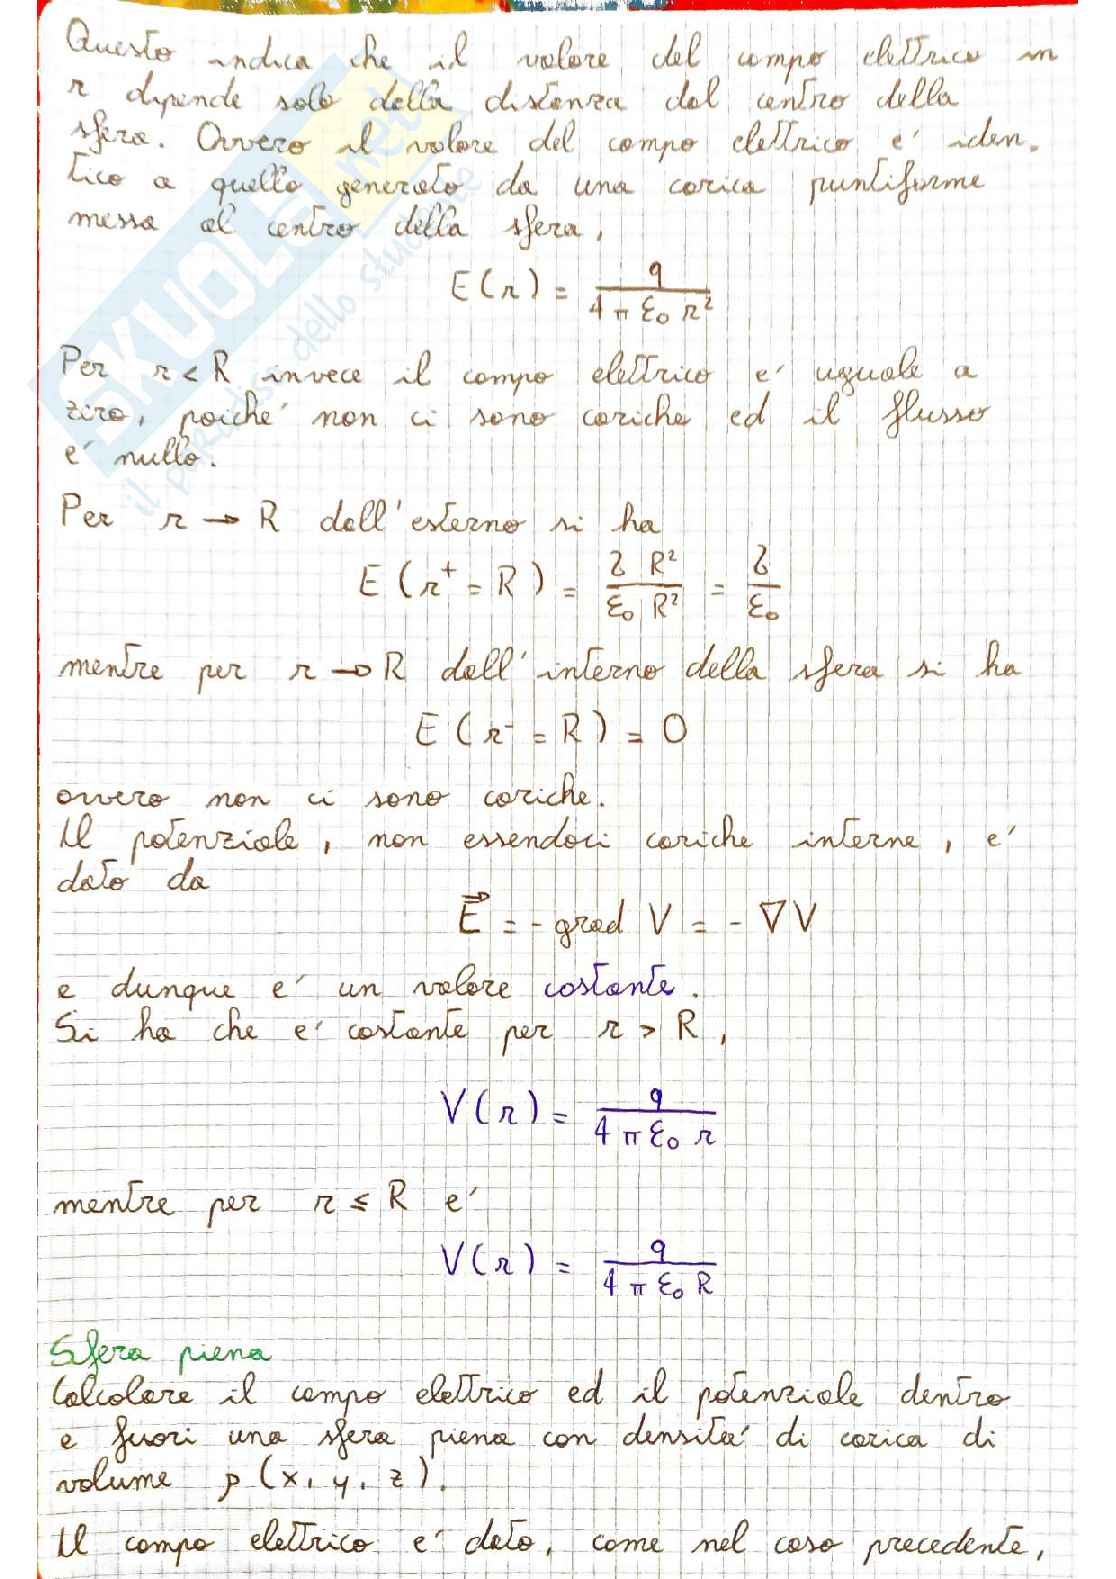 Questo indica che il valore del campo elettrico in
r dipende solo dalla distanza dal centro della
sfera. Ovvero il valore del campo elettrico e' iden.
tico a quello generato da una carica puntiforme
messa al centro della sfera,
E(r) = q / 4 π ε₀ r²
Per r < R invece il campo elettrico e' uguale a
zero, poiche' non ci sono cariche ed il flusso
e' nullo.
Per r → R dall'esterno si ha
E (r⁺ = R) = σ R² / ε₀ R² = σ / ε₀
mentre per r → R dall'interno della sfera si ha
E (r⁻ = R) = 0
ovvero non ci sono cariche.
Il potenziale, non essendoci cariche interne, e'
dato da
E⃗ = - grad V = - ∇V
e dunque e' un valore costante.
Si ha che e' costante per r > R,
V(r) = q / 4 π ε₀ r
mentre per r ≤ R e'
V(r) = q / 4 π ε₀ R
Sfera piena
Calcolare il campo elettrico ed il potenziale dentro
e fuori una sfera piena con densita' di carica di
volume ρ (x, y, z).
Il campo elettrico e' dato, come nel caso precedente,
SKUOLA.net
il paradiso dello studente